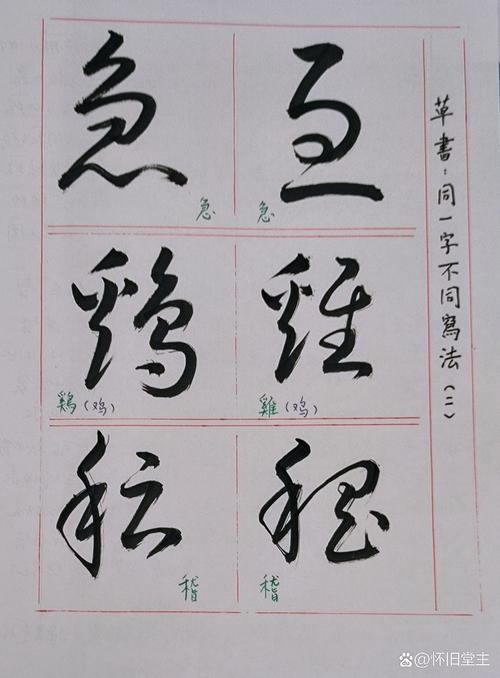 草書：同一字不同寫法（二）
急 急
急 急
鷄 雞
鷄（鸡） 雞（鸡）
稽 稽
稽 稽
@怀旧堂主